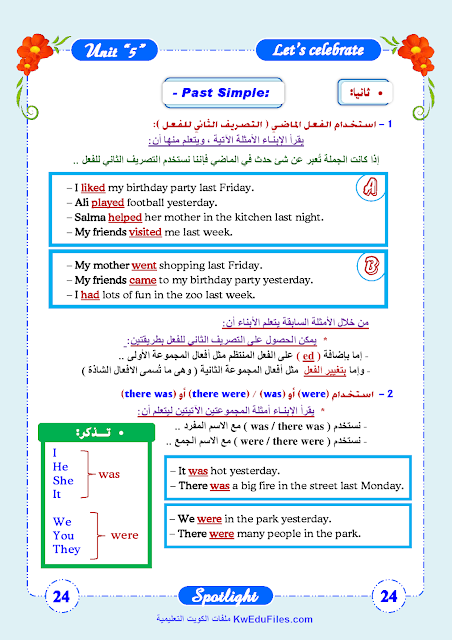 Unit “5”
Let's celebrate
• ثانيا:
- Past Simple:
1 – استخدام الفعل الماضي ( التصريف الثاني للفعل ):
يقرأ الأبناء الأمثلة الآتية ، ويتعلم منها أن:
إذا كانت الجملة تُعبر عن شئ حدث في الماضي فإننا نستخدم التصريف الثاني للفعل ..
A
– I liked my birthday party last Friday.
– Ali played football yesterday.
– Salma helped her mother in the kitchen last night.
– My friends visited me last week.
B
– My mother went shopping last Friday.
– My friends came to my birthday party yesterday.
– I had lots of fun in the zoo last week.
من خلال الأمثلة السابقة يتعلم الأبناء أن:
* يمكن الحصول على التصريف الثاني للفعل بطريقتين:
- إما بإضافة ( ed ) على الفعل المنتظم مثل أفعال المجموعة الأولى ..
- وإما بتغيير الفعل مثل أفعال المجموعة الثانية ( وهى ما تُسمى الافعال الشاذة )
2 – استخدام (were) أو (was) / (there were) أو (there was)
* يقرأ الأبناء أمثلة المجموعتين الاتيتين ليتعلم أن:
- نستخدم ( was / there was ) مع الاسم المفرد ..
- نستخدم ( were / there were ) مع الاسم الجمع ..
• تــذكر:
I
He
She
It
was
We
You
They
were
– It was hot yesterday.
– There was a big fire in the street last Monday.
– We were in the park yesterday.
– There were many people in the park.
24
Spotlight
24
ملفات الكويت التعليمية KwEduFiles.com